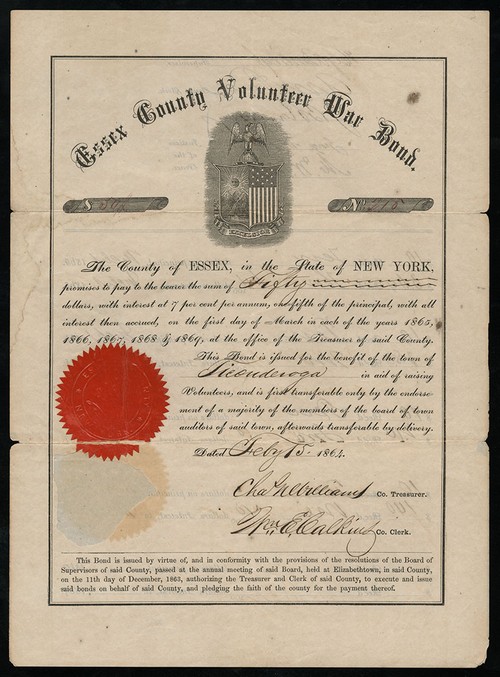 Essex County Volunteer War Bond.
$ 50
No. 515
The County of ESSEX, in the State of NEW YORK,
promises to pay to the bearer the sum of Fifty
dollars, with interest at 7 per cent per annum, one fifth of the principal, with all
interest then accrued, on the first day of March in each of the years 1865,
1866, 1867, 1868 & 1869, at the office of the Treasurer of said County.
This Bond is issued for the benefit of the town of
Ticonderoga in aid of raising
Volunteers, and is first transferable only by the endorse-
ment of a majority of the members of the board of town
auditors of said town, afterwards transferable by delivery.
Dated Feby 15 1864.
Chas N Williams Co. Treasurer.
Wm E. Calkins Co. Clerk.
This Bond is issued by virtue of, and in conformity with the provisions of the resolutions of the Board of
Supervisors of said County, passed at the annual meeting of said Board, held at Elizabethtown, in said County,
on the 11th day of December, 1863, authorizing the Treasurer and Clerk of said County, to execute and issue
said bonds on behalf of said County, and pledging the faith of the county for the payment thereof.